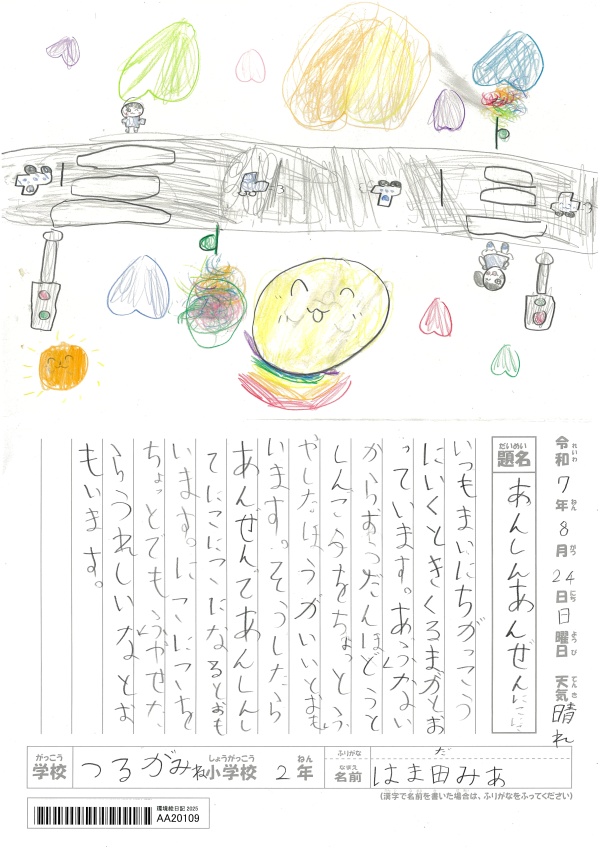 令和7年8月24日日曜日 天気晴れ
れいわ ねん がつ にち ようび てんき
だいめい
題名 あんしんあんぜん
いつもまいにちがっこう
にいくときくるまがとお
っています。あぶない
からおうだんほどうと
しんごうをちょっとふ
やしたほうがいいとおも
います。そうしたら
あんぜんであんしんし
てにこにこになるとおも
います。にこにこいちを
ちょっとでもふやせた
らうれしいなとお
もいます。
がっこう しょうがっこう ねん
学校 つるがみね小学校 2年
ふりがな だ
なまえ
名前 はま田みあ
(漢字で名前を書いた場合は、ふりがなをふってください)
環境絵日記 2025
AA20109